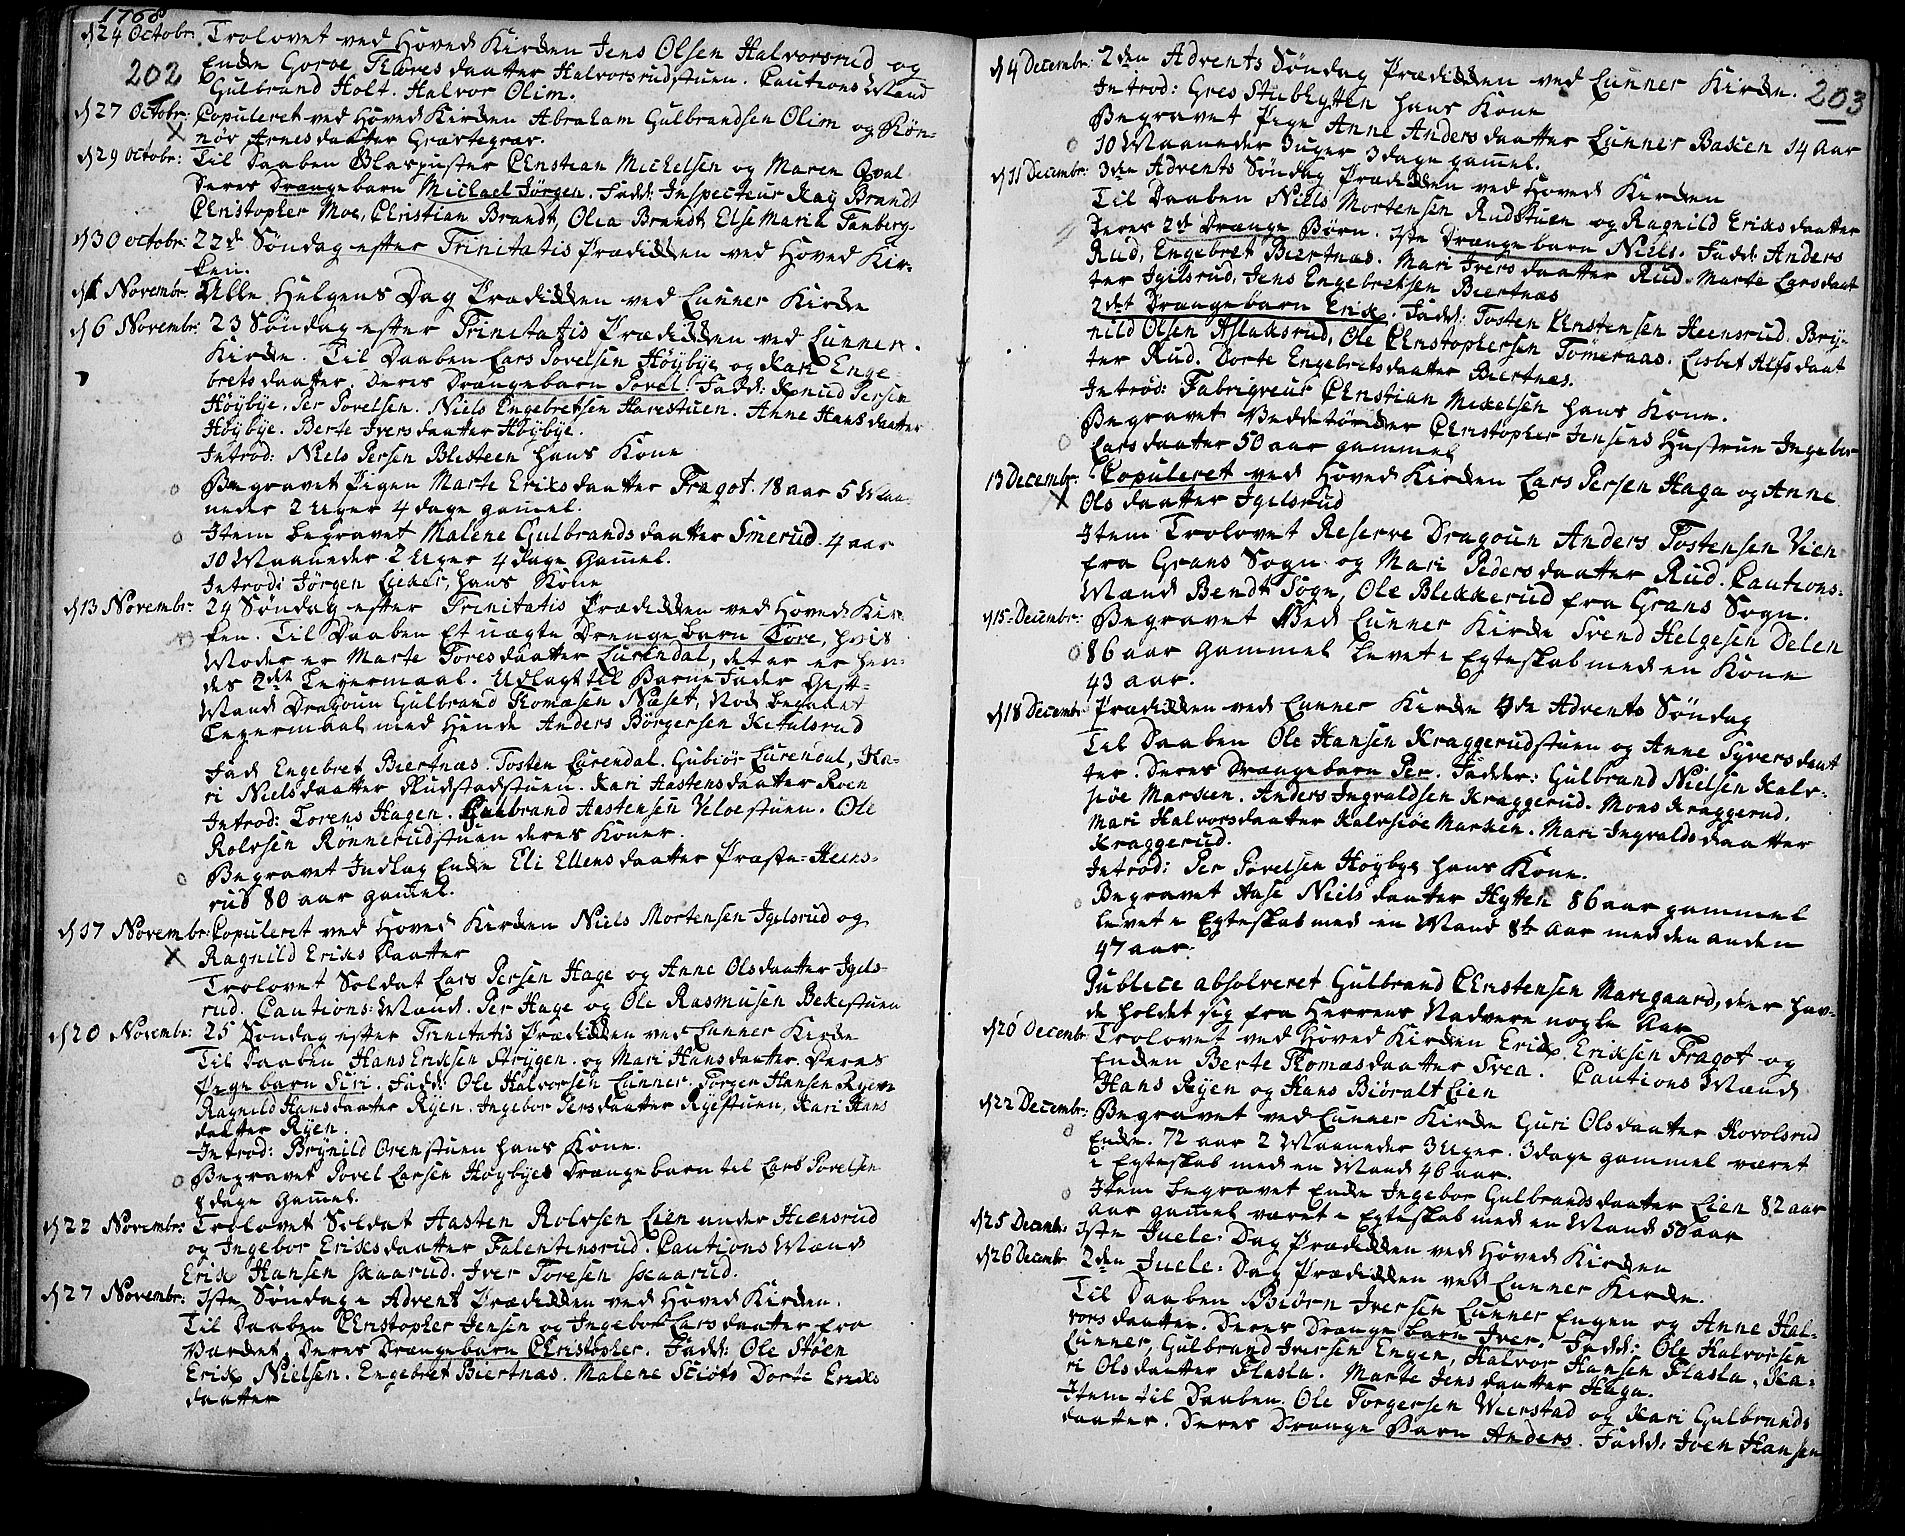 1768
202
d 24 Octobr: Trolovet ved Hoved Kirken Jens Olsen Halvorsrud og
Enke Goroe Tores daatter Halvorsrudstuen. Cautions Mænd
Gulbrand Holt. Halvor Olim.
d 27 Octobr: Copuleret ved Hoved Kirken Abraham Gulbrandsen Olim og Røn-
nøv Arnes daatter Græstegrav.
d 29 Octobr: Til Daaben Glaspuster Christian Michelsen og Maren Qval
Deres Drængebarn Michael Jørgen. Fadd: Inspecteur Kay Brandt
Christopher Moe, Christian Brandt, Olea Brandt, Else Maria Tanberg
d 30 octobr: 22de Søndag efter Trinitatis Prædikken ved Hoved Kir-
ken.
d 1 Novembr: Alle Helgens Dag Prædikken ved Lunner Kirke
d 6 Novembr: 23 Søndag efter Trinitatis Prædikken ved Lunner
Kirke. Til Daaben Lars Povelsen Høybye og Kari Enge-
brets daatter. Deres Drængebarn Povel. Fadd: Knud Persen
Høybye. Per Povelsen. Niels Engebretsen Harestuen. Anne Hans daatter
Høybye. Berte Ivers daatter Høybye.
Introd: Niels Persen Blesteen hans Kone
Begravet Pigen Marte Eriks daatter Fragot. 18 aar 5 Maa-
neder 2 Uger 4 dage gamel.
Item begravet Malene Gulbrands daatter Smerud. 4 aar
10 Maaneder 2 Uger 4 dage Gamel.
Introd: Jørgen hans Kone
d 13 Novembr: 24 Søndag efter Trinitatis Prædikken ved Hoved Kir-
ken. Til Daaben Et uægte Drengebarn Tore, hvis
Moder er Marte Toresdaatter Lurendal, det er er hen-
des 2det Leyermaal. Udlagt til Barne Fader Gift-
Mand Dragoun Gulbrand Thomasen Næset, Nok begaaet
Leyermaal med Hende Anders Børgersen Ketulsrud
Fad Engebret Biertnæs. Tosten Lurendal. Gubiør Lurendal, Ka-
ri Niels daatter Rudstadstuen. Kari Hastens daatter Roen
Introd: Torens Hagen. Gulbrand Hastensen Velostuen. Ole
Rolvsen Rønnerudstuen deres Koner.
Begravet Indlag Enke Eli Ellens daatter Præste-Heens-
rud 80 aar gamel.
d 17 Novembr: Copuleret ved Hoved Kirken Niels Mortensen Igelsrud og
Ragnild Eriks Daatter
Trolovet Soldat Lars Persen Hage og Anne Olsdaatter Igels-
rud. Cautions-Mænd. Per Hage og Ole Rasmusen Bekestuen
d 20 Novembr: 25 Søndag efter Trinitatis Prædikken ved Lunner Kirke
Til Daaben Hans Eriksen Strygen. og Mari Hans daatter. Deres
Pigebarn Siri. Fadd: Ole Halvorsen Lunner. Torger Hansen Ryen
Ragnild Hans daatter Ryen. Ingebor Persdaatter Ryestuen, Kari Hans
daatter Ryen.
Introd: Brynild Orenstuen hans Kone.
Begravet Povel Larsen Høybye Drængebarn til Lars Povelsen
8 dage Gamel.
d 22 Novembr: Trolovet Soldat Hasten Rolvsen Lien under Heensrud
og Ingebor Eriksdaatter Falentinsrud. Cautions Mænd
Erik Hansen Skaarud. Iver Toresen Skaarud.
d 27 Novembr: 1ste Søndag i Advent Prædikken ved Hoved Kirken.
Til Daaben Christopher Jensen og Ingebor Lars daatter fra
Deres Drængebarn Christopher. Fadd: Ole Støen
Erik Nielsen. Engebret Biertnæs. Malene Dorte Eriks
daatter
203
d 4 Decembr: 2den Advents Søndag Prædikken ved Lunner Kirke.
Introd: Gres Stubhytten hans Kone
Begravet Pige Anne Anders daatter Lunner Bakken 14 Aar
10 Maaneder 3 uger 3 dage gamel.
d 11 Decembr: 3de Advents Søndag Prædikken ved Hoved Kirken
Til Daaben Niels Mortensen Rudstuen og Ragnild Eriks daatter
Deres 2de Drænge Børn. 1ste Drængebarn Niels. Fadd: Anders
Rud, Engebret Biertnæs. Mari Ivers daatter Rud. Marte Larsdaat
ter Igelsrud, Jens Engebretsen Biertnæs
2det Drængebarn Erik. Fadd: Tosten Christensen Heensrud. Bry-
nild Olsen Aslaksrud, Ole Christophersen Tømeraas. Lisbet Alfsdaat
ter Rud. Dorte Engebrets daatter Biertnæs.
Introd: Fabriqveur Christian Mikelsen hans Kone.
Begravet Christopher Jensens Hustrue Ingebor
Larsdaatter 50 aar gammel
13 Decembr: Copuleret ved Hoved Kirken Lars Persen Haga og Anne
Ols daatter Igelsrud
Item Trolovet Reserve Dragoun Anders Tostensen Vien
fra Grans Sogn og Mari Peders daatter Rud. Cautions-
Mænd Bendt Sogn, Ole Blekkerud fra Grans Sogn.
d 15 Decembr: Begravet Ved Lunner Kirke Svend Helgesen Delen
86 aar Gammel Levet i Egteskab med en Kone
43 aar.
d 18 Decembr Prædikken ved Lunner Kirke 4de Advents Søndag
Til Daaben Ole Hansen Kraggerudstuen og Anne Syvers daat
ter. Deres Drængebarn Per. Fadder: Gulbrand Nielsen Kalv-
siøe Marken. Anders Ingvaldsen Kraggerud. Mons Kraggerud.
Mari Halvors daatter Kalvsiøe Marken. Mari Ingvalds daatter
Kraggerud.
Introd: Per Povelsen Høybye hans Kone.
Begravet Aase Niels daatter Hytten 86 aar gammel
levet i Egteskab med en Mand 8½ Aar med den anden
47 aar.
Publice absolveret Gulbrand Christensen Marigaard, der hav-
de holdet sig fra Herrens Nadvere nogle Aar
d 20 Decembr Trolovet ved Hoved Kirken Erik Eriksen Fragot og
Enken Berte Thomas daatter Svea. Cautions Mænd
Hans Ryen og Hans Biøralt Lien
d 22 Decembr: Begravet ved Lunner Kirke Guri Olsdaatter Kovolsrud
Enke. 72 aar 2 Maaneder 3 Uger. 3 dage gammel været
i Egteskab med en Mand 46 aar.
Item begravet Enke Ingebor Gulbrands daatter Lien 82 aar
aar gamel været i Egteskab med en Mand 50 aar
d 25 Decembr: 1ste Juele-Dag Prædikken ved Hoved Kirken
d 26 Decembr 2den Juele-Dag Prædikken ved Lunner Kirke.
Til Daaben Biørn Iversen Lunner Engen og Anne Hal-
vors daatter. Deres Drængebarn Iver. Fadd: Ole Halvorsen
Lunner, Gulbrand Iversen Engen, Halvor Hansen Flasla, Ka-
ri Olsdaatter Flasla. Marte Jens daatter Haga.
Item til Daaben Ole Torgersen Veerstad og Kari Gulbrands
daatter. Deres Drænge Barn Anders. Fadd: Iven Hansen